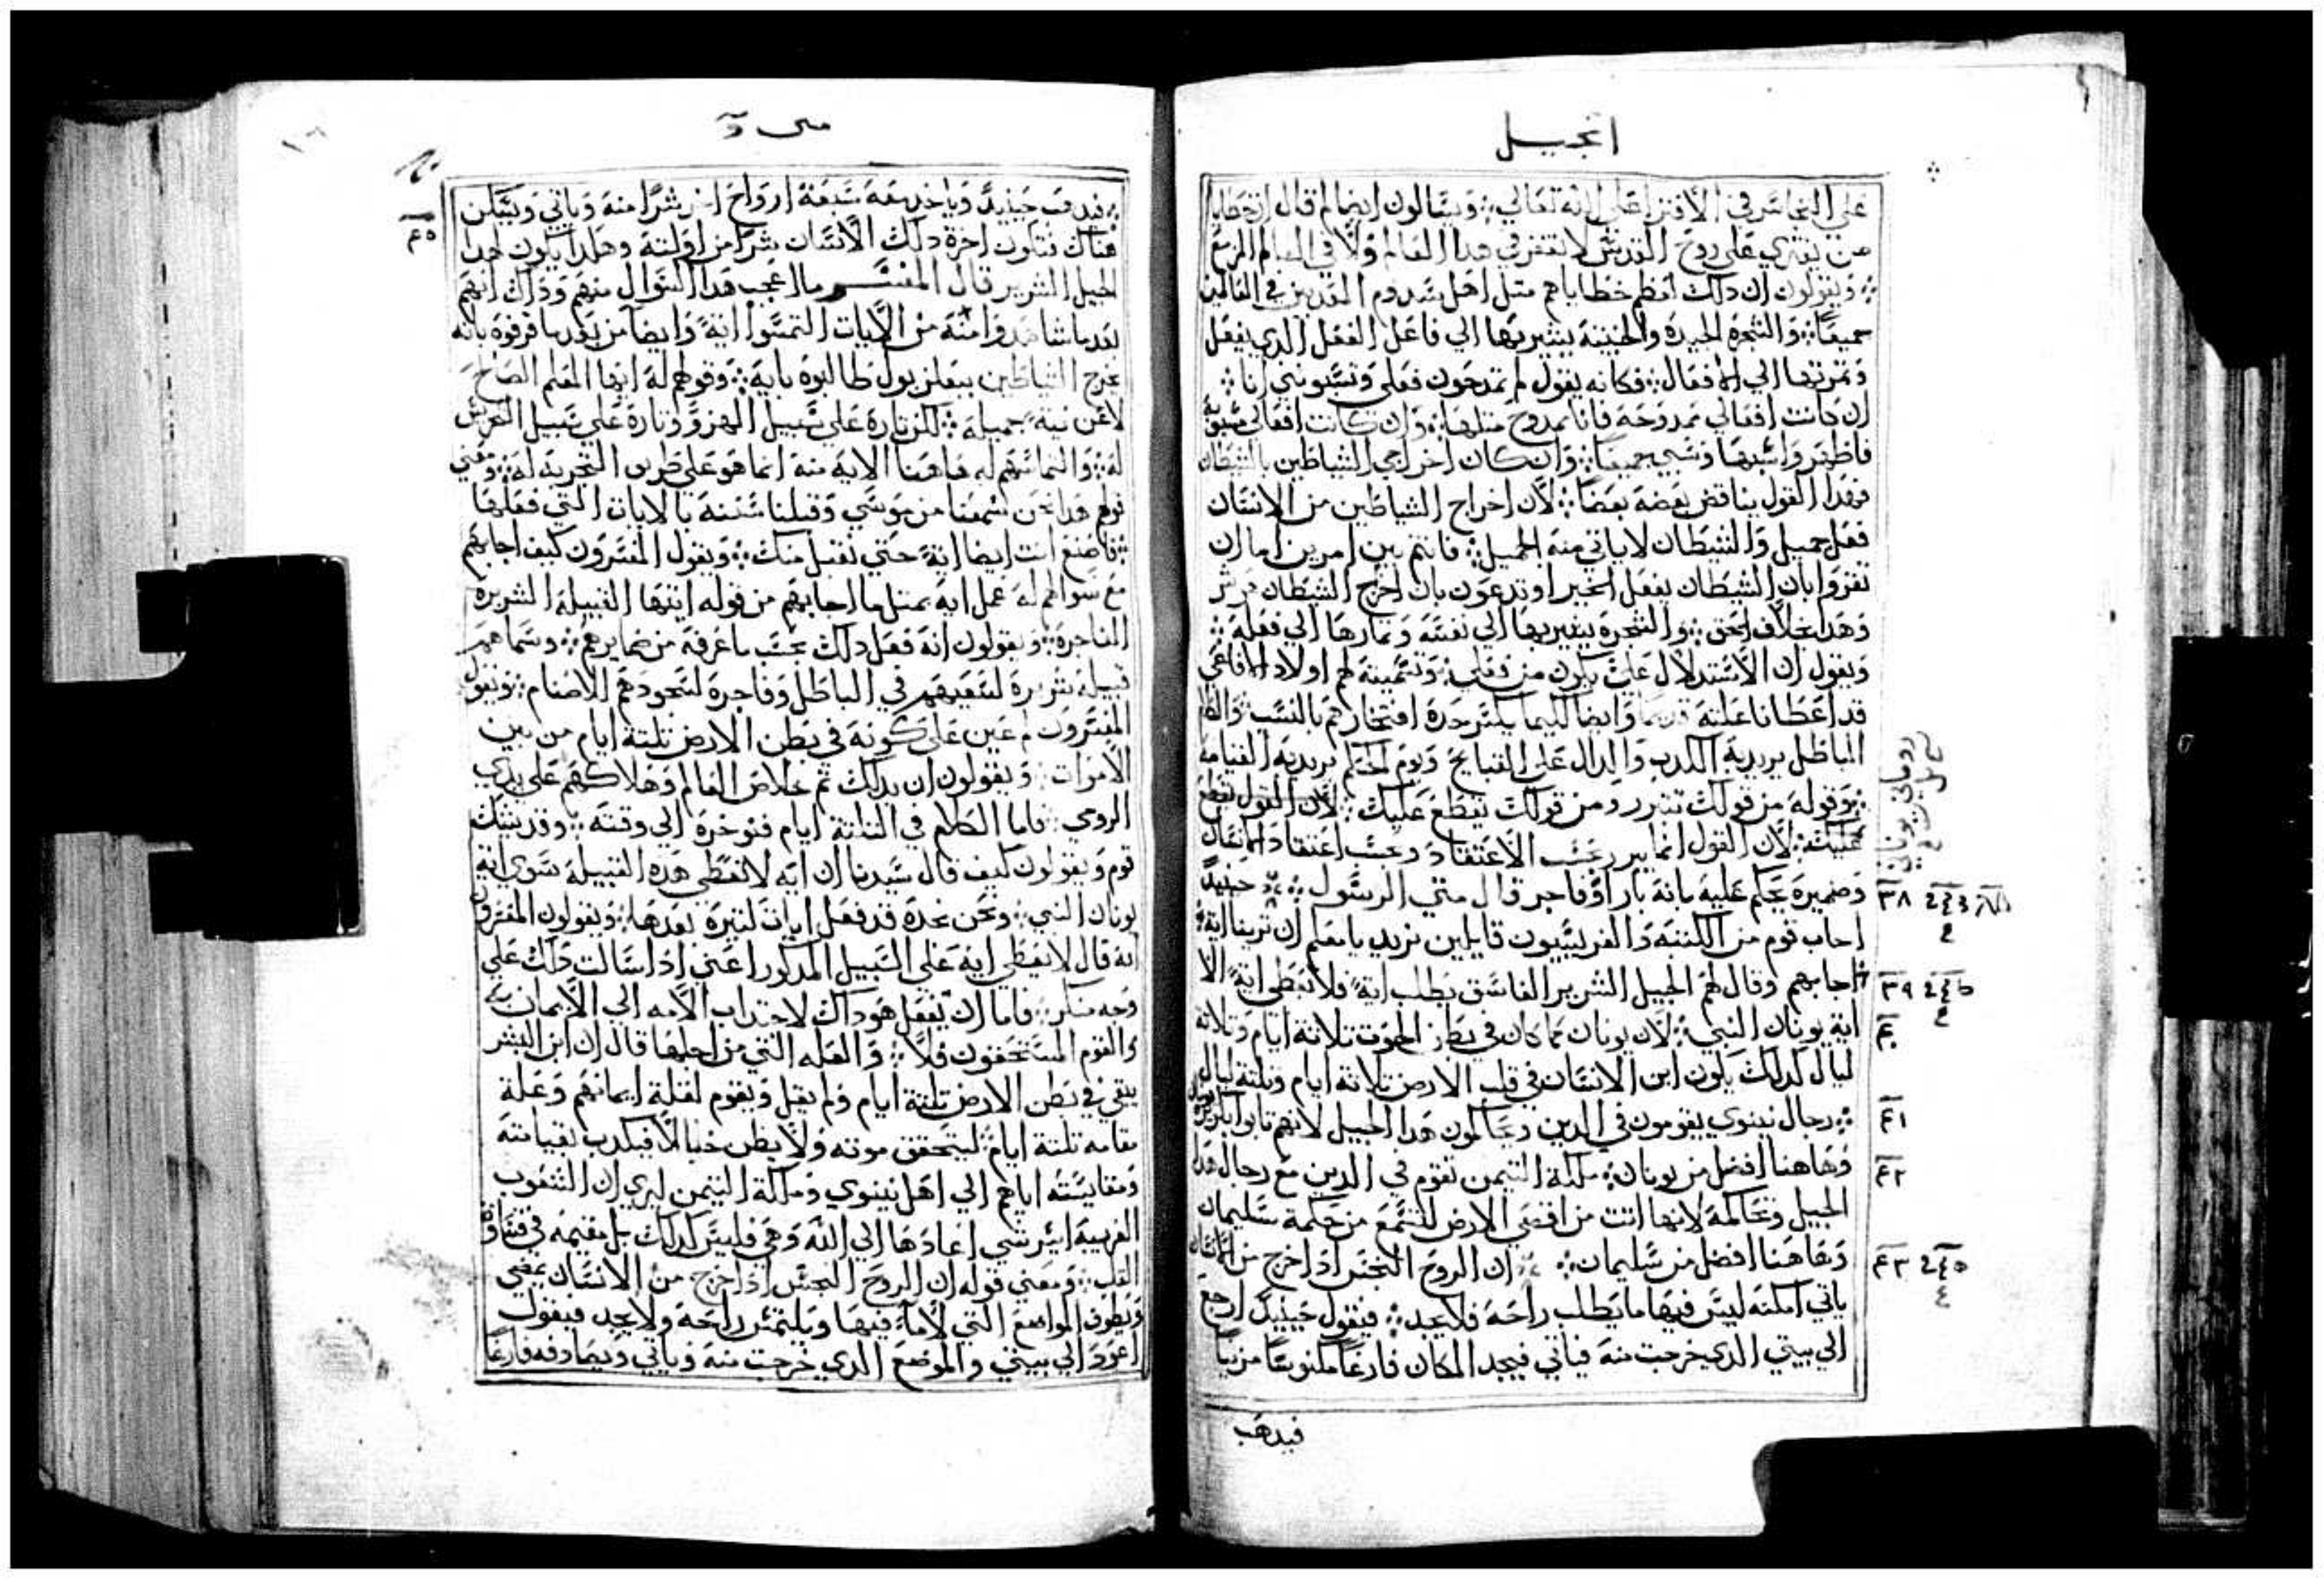 انجيل
على التجاسر في الافترا على الله تعالى ويسالون ايضا لم قال ان خطايا
من يفتري على روح القدس لا تغفر في هدا العالم ولا في العالم المزمع
ويقولون ان دلك اعظم خطاياهم متل اهل سدوم المعدبين في العالمين
جميعًا والشجرة الجيدة والخبيتة يشير بها الي فاعل الفعل الدي يفعل
وتمرتها الي الافعال فكانه يقول لم تمدحون فعلي وتسبونني انا
ان كانت افعالي ممدوحة فانا ممدوح متلها وان كانت افعالي
جميعا وان كان اخراجي الشياطين بالشيطان
فهدا القول يناقض بعضه بعضًا لان اخراج الشياطين من الانسان
فعل جميل والشيطان لا ياتي منه الجميل فانتم بين امرين اما ان
تقروا بان الشيطان يفعل الخير او تدعون بان اخرج الشيطان
وهدا بخلاف الحق والشجرة يشير بها الي نفسه وتمارها الي فعله
ويقول ان الاستدلال علي يكون من فعلي وتسميته لهم اولاد الافاعي
قد اعطانا علته وايضا كيما يكسر حدة افتخارهم بالنسب
الباطل يريد به الكدب والدال على القبايح ويوم الحكم يريد به القيامة
وقوله من قولك تتبرر ومن قولك يقطع عليك لان القول يقطع
عليك لان القول انما يبرر بحسب الاعتقاد وبحسب اعتقاد الانسان
وضميره يحكم عليه بانه بار او فاجر قال متي الرسول حينيدً
٣٨
اجاب قوم من الكتبة والفريسيون قايلين نريد يا معلم ان ترينا اية
اجابهم وقال لهم الجيل الشرير الفاسق يطلب ايةً فلا يعطى ايةً الا
٣٩
اية يونان النبي لان يونان كما كان في بطن الحوت تلاتة ايام وتلاتة
٤٠
ليال كدلك يكون ابن الانسان في قلب الارض تلاتة ايام وتلتة ليال
رجال نينوي يقومون في الدين ويحاكمون هدا الجيل لانهم تابوا
٤١
وهاهنا افضل من يونان ملكة التيمن تقوم في الدين مع رجال هدا
٤٢
الجيل وتحاكمه لانها اتت من اقصى الارض لتسمع من حكمة سليمان
وهاهنا افضل من سليمان ان الروح النجس ادا خرج من الانسان
٤٣
ياتي امكنه ليس فيها ما يطلب راحة فلا يجد فيقول حينيدٍ ارجع
الي بيتي الدي خرجت منه فياتي فيجد المكان فارغًا مكنوسًا مزينًا
فيدهب
متى
٤٥
فيدهب حينيدً وياخد معه سبعة ارواح اخر شرًا منه وياتي ويسكن
هناك فتكون اخرة دلك الانسان شرًا من اولته وهكدا يكون لهدا
الجيل الشرير قال المفسر ما اعجب هدا السوال منهم وداك انهم
بعد ما شاهدوا منه من الايات التمسوا ايةً وايضا من بعد ما قرفوه بانه
يخرج الشياطين ببعلزبول طالبوه باية وقولهم له ايها المعلم الصالح
لا عن نية جميلة لكن تارة على سبيل الهزو وتارة على سبيل
له والتماسهم له هاهنا الاية منه انما هو على طريق التجربة له ومعني
قولهم هدا نحن سمعنا من موسي وقبلنا سننه بالايات التي فعلها
فاصنع انت ايضا ايةً حتي نقبل منك ويقول المفسرون كيف اجابهم
مع سوالهم له عمل اية بمتل ما اجابهم من قوله ايتها القبيلة الشريرة
الفاجرة ويقولون انه فعل دلك بحسب ما عرفه من ضمايرهم وسماهم
قبيلة شريرة لسعيهم في الباطل وفاجرة لسجودهم للاصنام ويقول
المفسرون لم عين على كونه في بطن الارض تلتة ايام من بين
الامرات ويقولون ان بدلك تم خلاص العالم وهلاكهم على يدي
الروم فاما الكلام في التلتة ايام فنوخره الي وقته وقد يشك
قوم ويقولون كيف قال سيدنا ان ايه لا تعطى هده القبيلة سوى اية
يونان النبي ونحن نجده قد فعل ايات كتيرة بعدها ويقولون المفسرون
انه قال لا تعطي اية على السبيل المدكور اعني ادا سالت دلك على
وجه منكر فاما ان يفعل هو داك لاجتداب الامه الي الايمان به
والقوم المستحقون فلا والعله التي من اجلها قال ان ابن البشر
يبقي في بطن الارض تلتة ايام ولم يقل ويقوم لقلة ايمانهم وعلة
مقامه تلتة ايام ليتحقق موته ولا يظن خيالا فيكدب بقيامته
ومقايسته اياهم الي اهل نينوي وملكة التيمن ليري ان الشعوب
الغريبة ايسر شي اعادها الي الله وهي فليس كدلك بل مقيمه في قساوة
القلب ومعني قوله ان الروح النجس ادا خرج من الانسان يمضي
ويطوف المواضع التي لا ماء فيها ويلتمس راحة ولا يجد فيقول
اعود الي بيتي والموضع الدي خرجت منه وياتي ويصادفه فارغًا